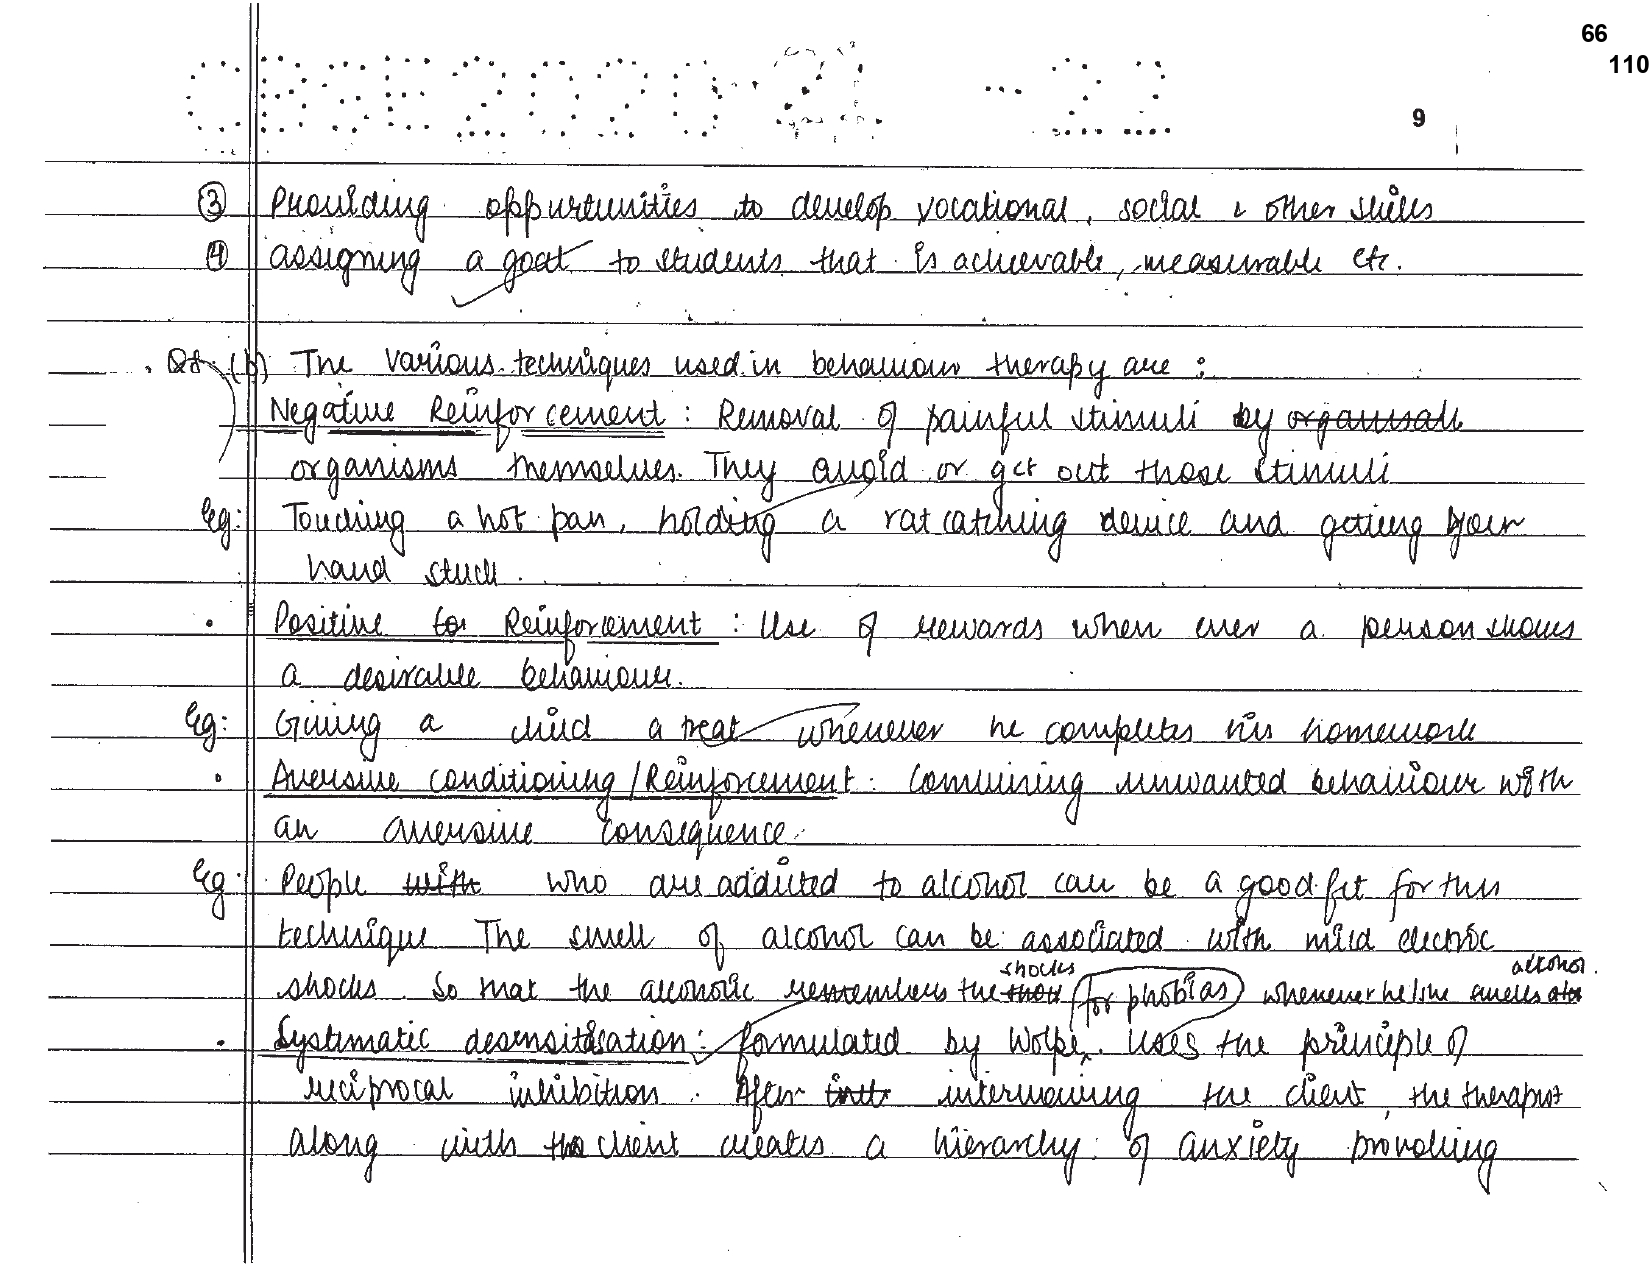 66
110
CBSE 2020-21 -22
9
③ Providing oppurtunities to develop vocational, social & other skills
④ assigning a goal to students that is achievable, measurable etc.
(b) The various techniques used in behaviour therapy are :
Negative Reinforcement : Removal of painful stimuli by
organisms themselves. They avoid or get out those stimuli
Eg: Touching a hot pan, holding a rat catching device and getting your
hand stuck.
• Positive Reinforcement : Use of rewards when ever a person shows
a desirable behaviour.
Eg: Giving a child a treat whenever he completes his homework
• Aversive conditioning/Reinforcement : Combining unwanted behaviour with
an aversive consequence.
Eg: People who are addicted to alcohol can be a good fit for this
technique The smell of alcohol can be associated with mild electric
shocks. So that the alcoholic remembers the shocks whenever he/she smells alcohol.
• Systematic desensitisation : (for phobias) formulated by Wolpe. Uses the principle of
reciprocal inhibition. After interviewing the client, the therapist
along with the client creates a hierarchy of anxiety provoking